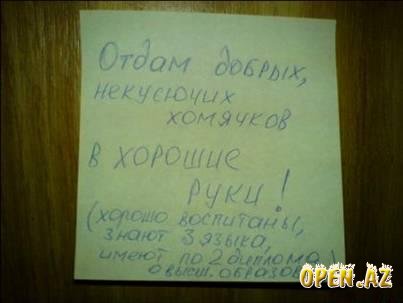 Отдам добрых,
некусючих
хомячков
в хорошие
руки!
(хорошо воспитаны,
знают 3 языка,
имеют по 2 диплома
о высш.
OPEN.AZ